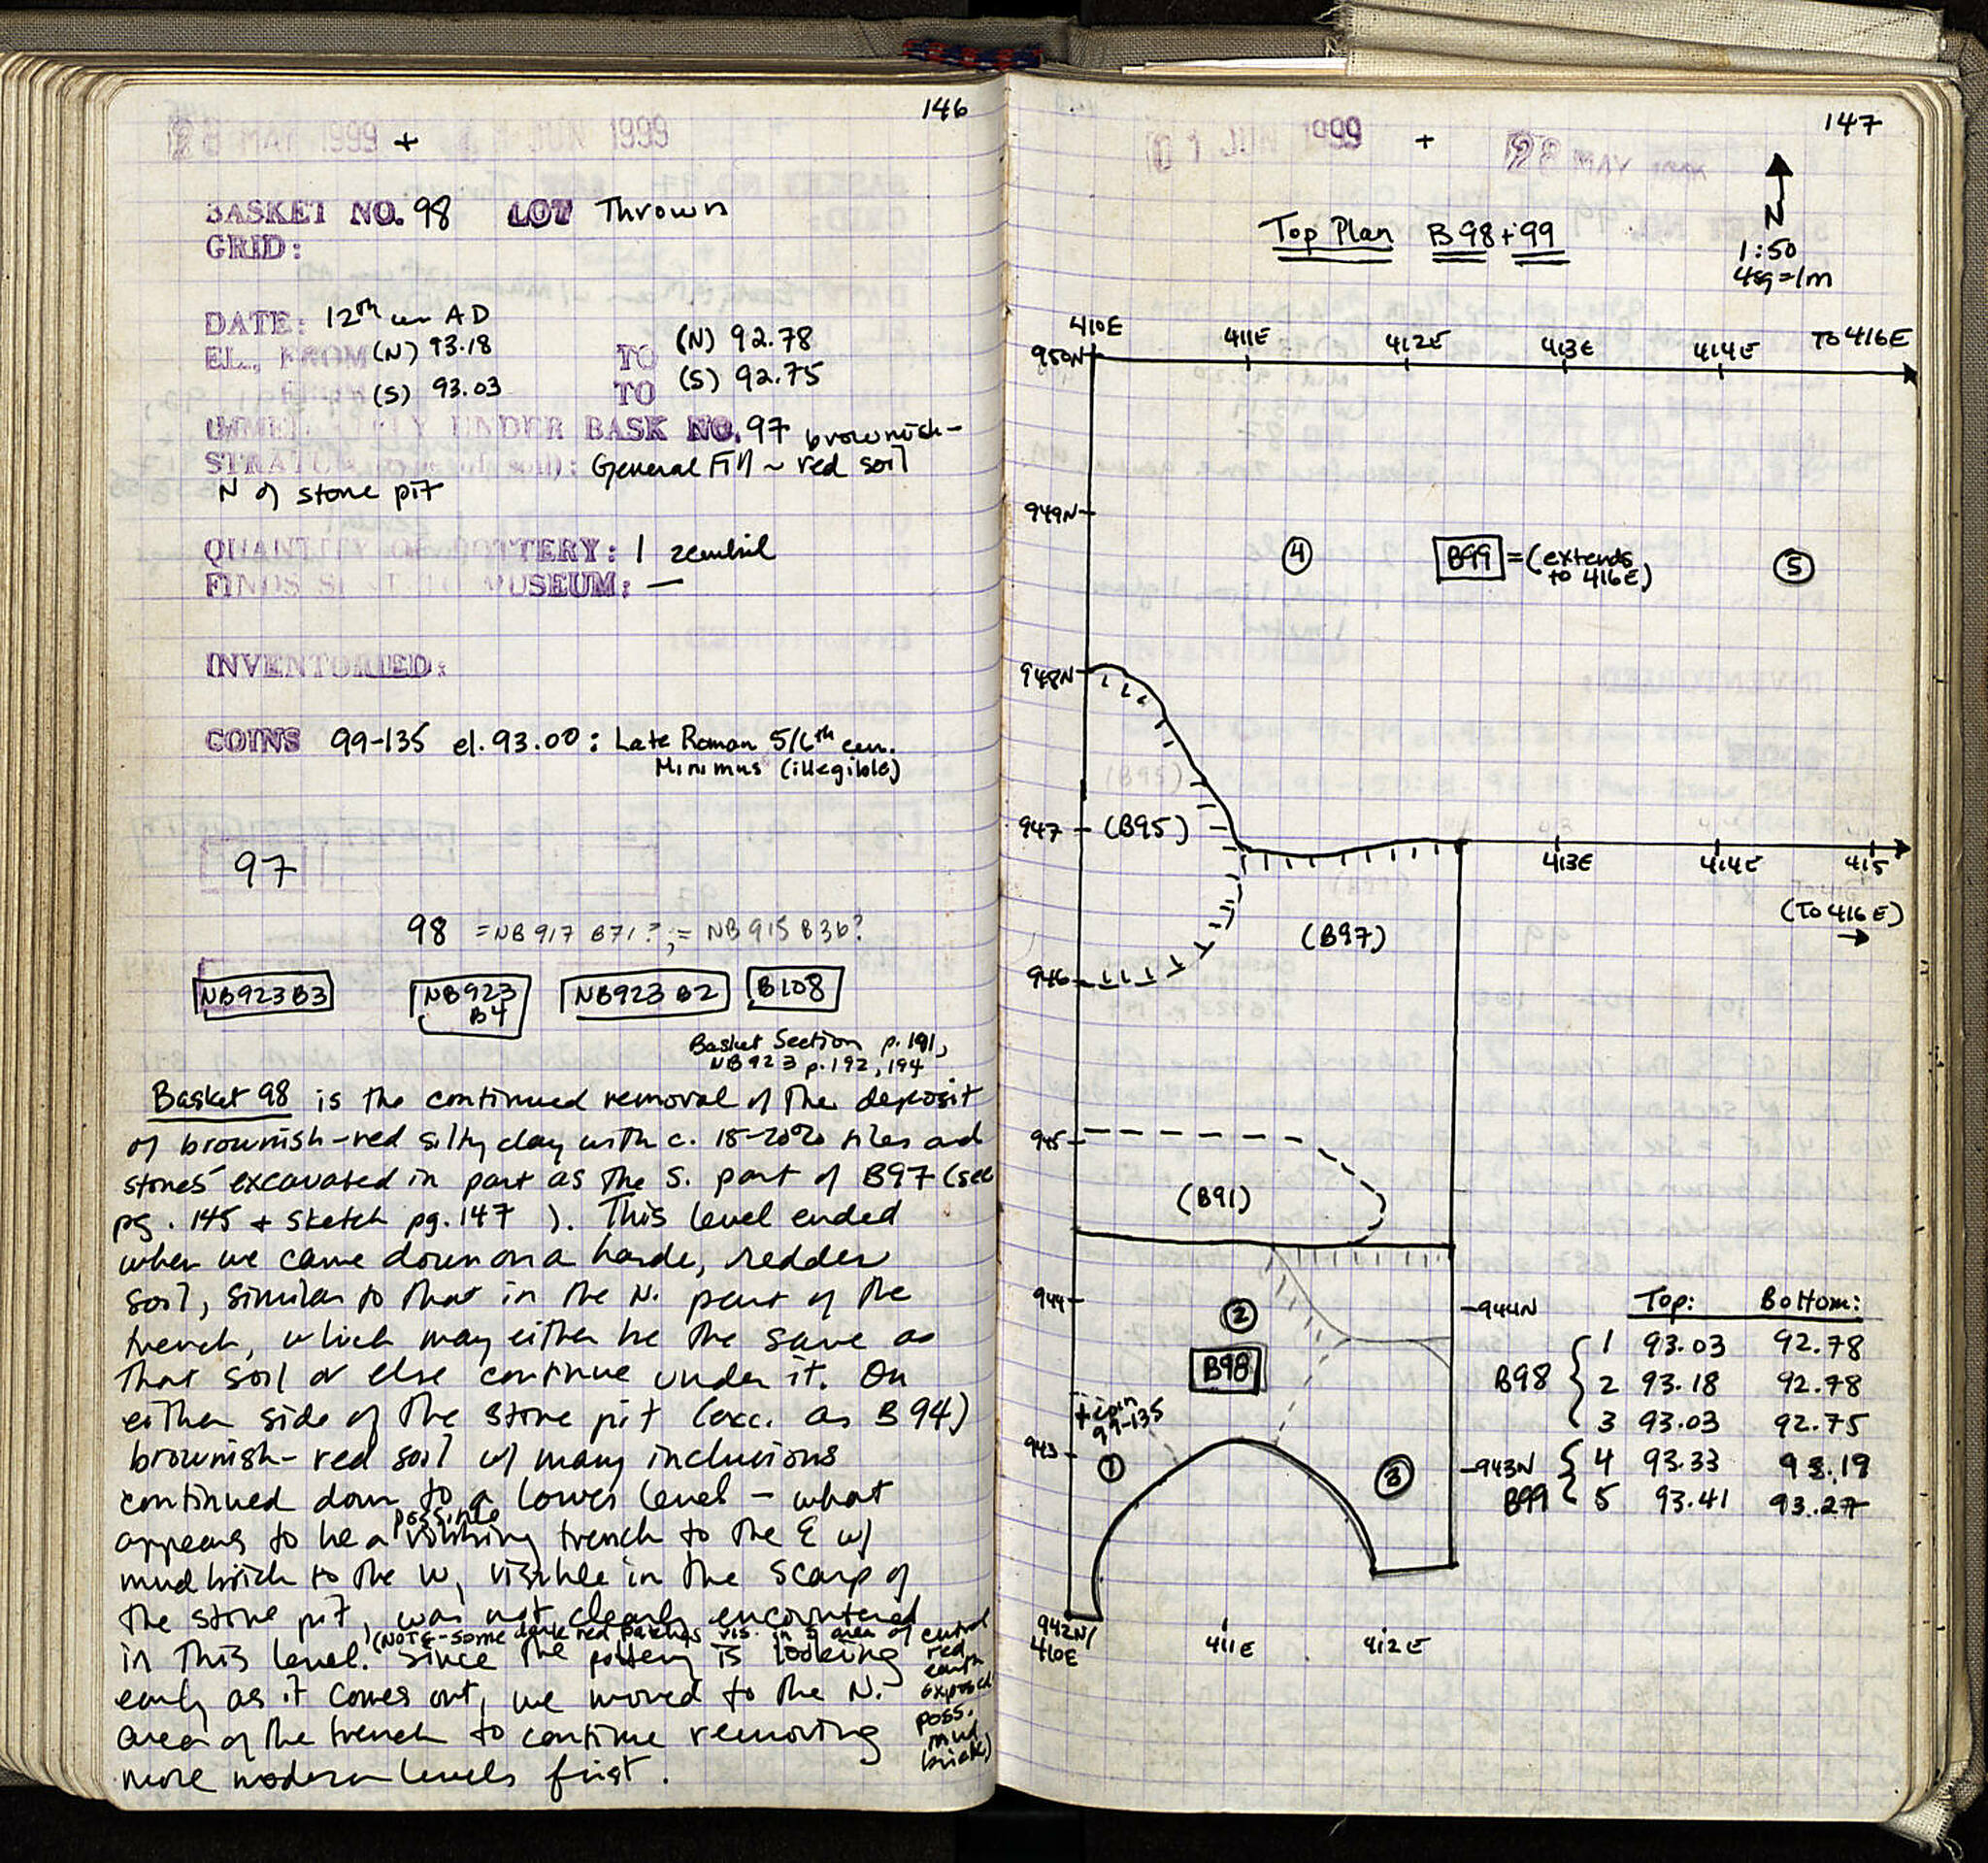 146
28 MAY 1999 + 1 JUN 1999
BASKET NO. 98 LOT Thrown
GRID:
DATE: 12th cen AD
EL., FROM (N) 93.18 TO (N) 92.78
(S) 93.03 TO (S) 92.75
UNDER BASK NO. 97 brownish-
General Fill ~ red soil
N of stone pit
QUANTITY OF POTTERY: 1 zembil
FINDS SENT TO MUSEUM: —
INVENTORIED:
COINS 99-135 el. 93.00: Late Roman 5/6th cen.
Minimus (illegible)
97
98 = NB 917 B71?; = NB 915 B36?
NB923 B3 NB923 B4 NB923 B2 B108
Basket Section p. 191,
NB923 p. 192, 194
Basket 98 is the continued removal of the deposit
of brownish-red silty clay with c. 15-20% tiles and
stones excavated in part as the S. part of B97 (see
pg. 145 + sketch pg. 147 ). This level ended
when we came down on a harder, redder
soil, similar to that in the N. part of the
trench, which may either be the same as
that soil or else continue under it. On
either side of the stone pit (exc. as B94)
brownish-red soil w/ many inclusions
continued down to a lower level - what
appears to be a possible robbing trench to the E w/
mudbrick to the W, visible in the scarp of
the stone pit, was not clearly encountered
in this level. (NOTE - some dark red patches vis. in s area of central red earth exposed poss. mud brick)
Since the pottery is looking
early as it comes out, we moved to the N.
area of the trench to continue removing
more modern levels first.
147
01 JUN 1999 + 28 MAY
N
1:50
4sq=1m
Top Plan B98+99
410E 411E 412E 413E 414E To 416E
950N
949N
4 B99 = (extends to 416E) 5
948N
(B95)
947 (B95)
413E 414E 415
(To 416E)
(B97)
946
945
(B91)
944 -944N
2
B98
+coin
99-135
943 -943N
1 3
942N/
410E 411E 412E
Top: Bottom:
B98 1 93.03 92.78
2 93.18 92.78
3 93.03 92.75
B99 4 93.33 93.19
5 93.41 93.27